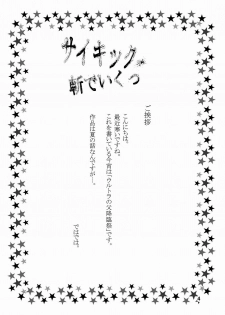 サイキック
斬でいくっ
ご挨拶
こんにちは。
最近寒いですね。
これを書いている今宵は「ウルトラの父降臨祭」です。
作品は夏の話なんですが…。
ではでは。